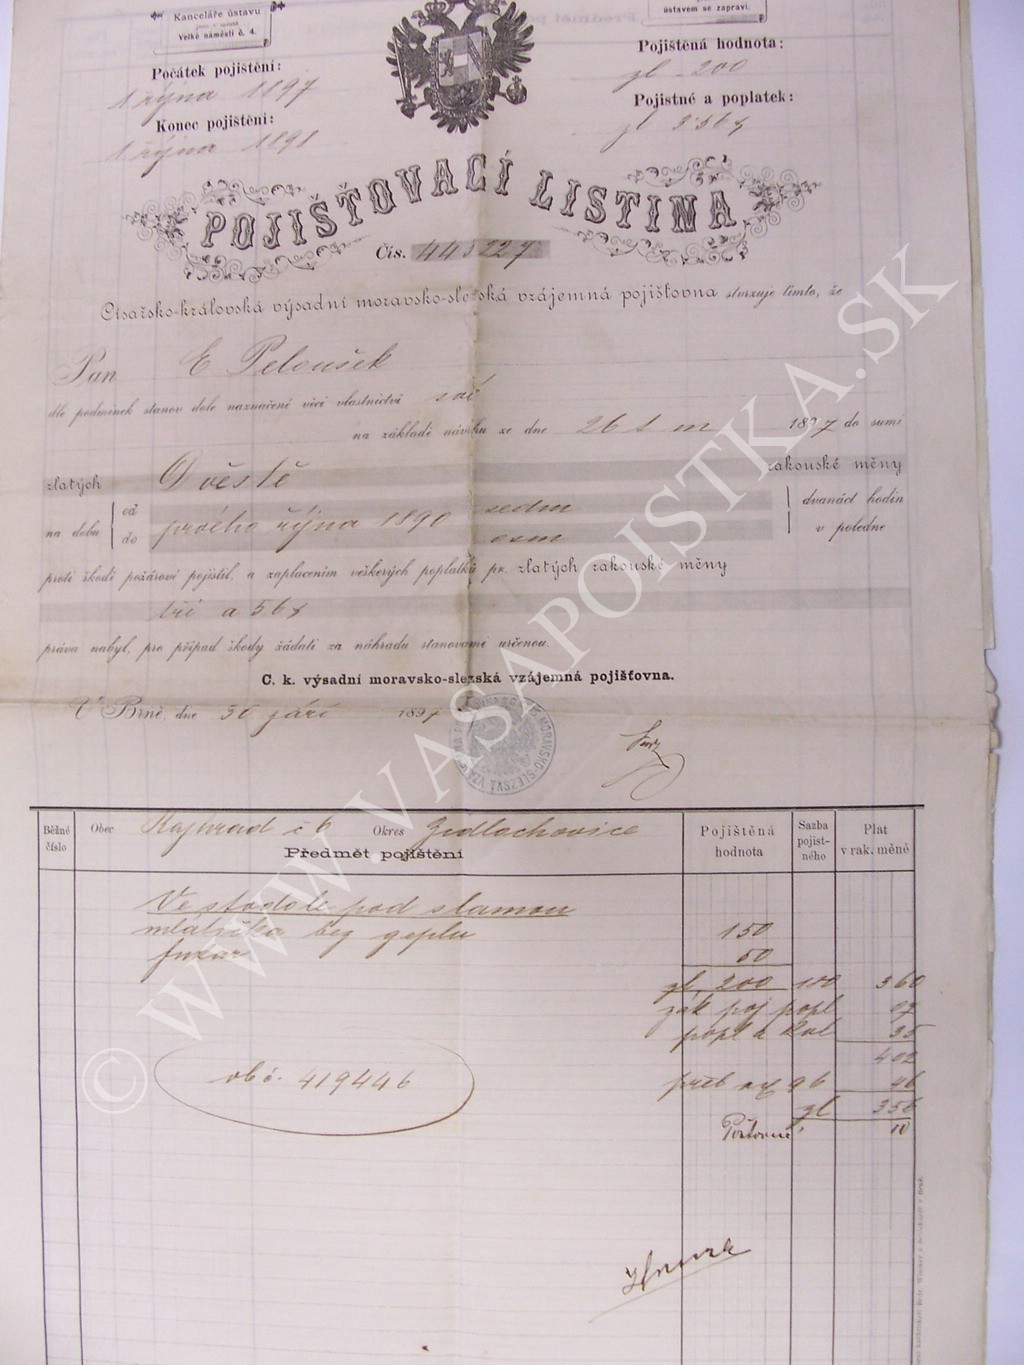 Kanceláře ústavu
Velké náměstí č. 4.
ústavem se zapraví.
Počátek pojištění:
1 října 1897
Konec pojištění:
1 října 1898
Pojištěná hodnota:
zl 200
Pojistné a poplatek:
zl 3·56
POJIŠŤOVACÍ LISTINA
Čís. 445227
Císařsko-královská výsadní moravsko-slezská vzájemná pojišťovna stvrzuje tímto, že
Pan E Peloušek
dle podmínek stanov dole naznačené věci vlastnictví své
na základě návrhu ze dne 26 t m 1897 do sumi
zlatých Dvěstě rakouské měny
na dobu od do prvého října 1890 sedm osm dvanáct hodin v poledne
proti škodě požárové pojistil, a zaplacením veškerých poplatků pr. zlatých rakouské měny
tři a 56
práva nabyl, pro případ škody žádati za náhradu stanovami určenou.
C. k. výsadní moravsko-slezská vzájemná pojišťovna.
V Brně, dne 30 září 1897
Běžné číslo
Obec Rajhrad č 6 Okres Židlochovice
Předmět pojištění
Pojištěná hodnota
Sazba pojistného
Plat v rak. měně
Ve stodole pod slamou
mlátička bez geplu 150
fukar 50
zl, 200 180 360
zák poj popl 07
popl a kol 35
402
46
zl 356
Poštovné 10
ob č. 419446
© WWW.VASAPOISTKA.SK